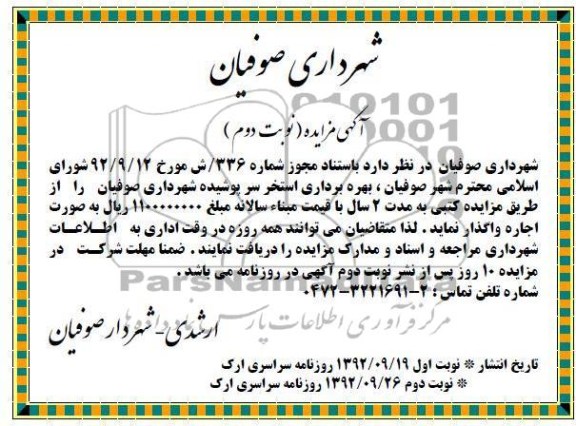 شهرداری صوفیان
آگهی مزایده (نوبت دوم)
شهرداری صوفیان در نظر دارد باستناد مجوز شماره ۳۳۶/ش مورخ ۹۲/۹/۱۲ شورای
اسلامی محترم شهر صوفیان ، بهره برداری استخر سر پوشیده شهرداری صوفیان را از
طریق مزایده کتبی به مدت ۲ سال با قیمت میناء سالانه مبلغ ۱۱۰۰۰۰۰۰۰۰ ریال به صورت
اجاره واگذار نماید . لذا متقاضیان می توانند همه روزه در وقت اداری به اطلاعات
شهرداری مراجعه و اسناد و مدارک مزایده را دریافت نمایند . ضمنا مهلت شرکت در
مزایده ۱۰ روز پس از نشر نوبت دوم آگهی در روزنامه می باشد .
شماره تلفن تماس : ۲-۳۲۲۱۶۹۱-۰۴۷۲
ارشدی - شهردار صوفیان
تاریخ انتشار * نوبت اول ۱۳۹۲/۰۹/۱۹ روزنامه سراسری ارک
* نوبت دوم ۱۳۹۲/۰۹/۲۶ روزنامه سراسری ارک
ParsNamadData
مرکز فرآوری اطلاعات پارس نماد داده ها